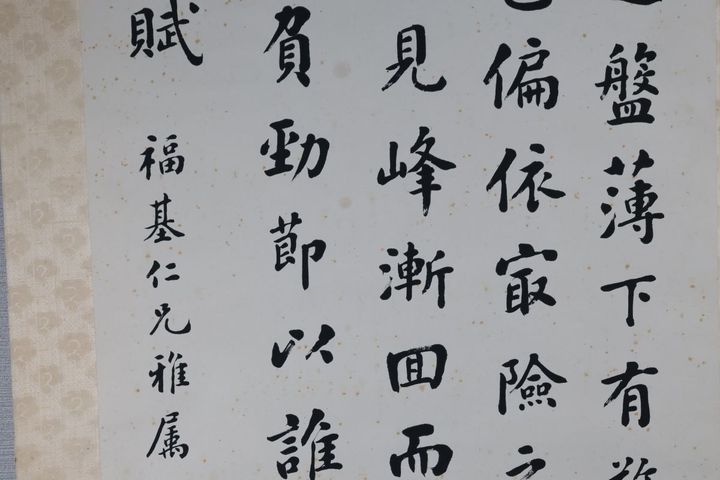 盤薄下有
偏依㝡險之
見峰漸囬而
負勁莭以誰
賦
福基仁兄雅属